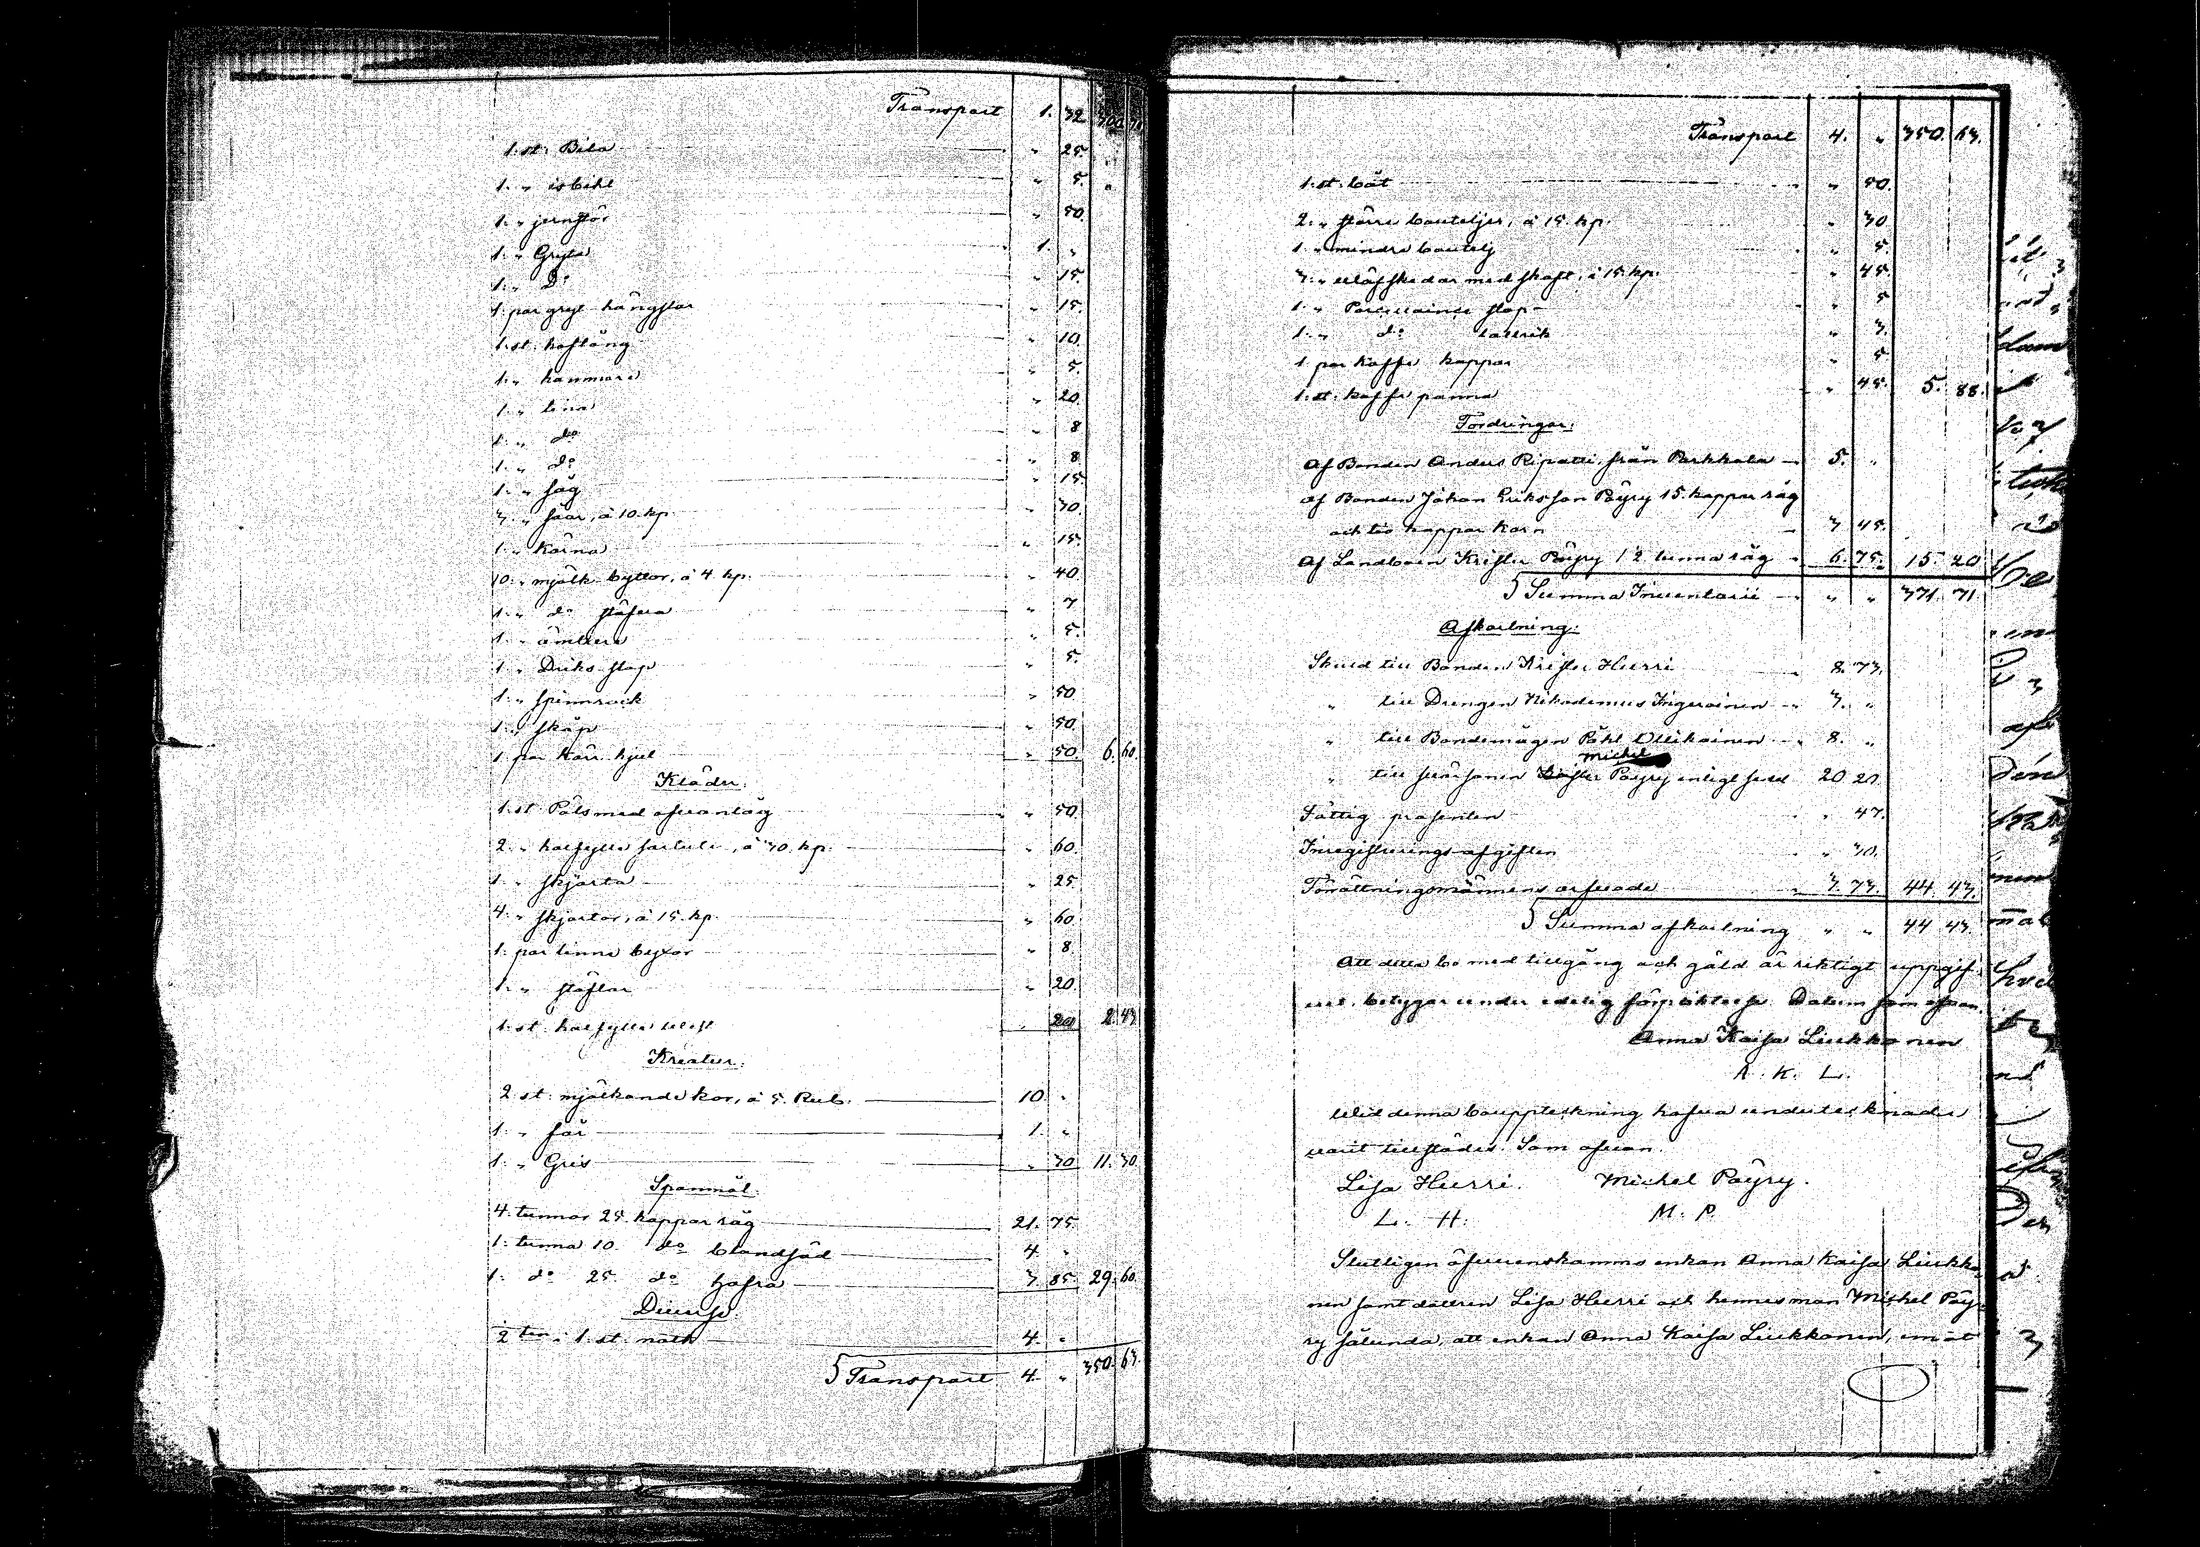 Transport 1. 32 300. 70
1. st. Bila " 25.
1. " isbihl " 5.
1. " jernstör " 50.
1. " Gryta 1. "
1. " Do " 15.
1. par gryt hängslar " 15.
1. st. hoftång " 10.
1. " hammare " 5.
1. " lina " 20.
1. " do " 8
1. " do " 8
1. " såg " 15
3. " såar, á 10. kp. " 30.
1. " Kärna " 15.
10. " mjölk byttor, á 4 kp. " 40
1. " do stäfva " 7
1. " ämbere " 5.
1. " Driks stop " 5.
1. " spinnrock " 50
1. " skåp " 50.
1 par Kärr hjul " 50. 6. 60.
Kläder:
1. st. Päls med ofvantåg " 50.
2. " halfyller , á 30. kp. " 60.
1. " skjorta " 25
4. " skjortor, á 15. kp. " 60
1. par linne byxor " 8.
1. " stöflar " 20.
1. st. halfylle west 20 2. 43
Kreatur:
2 st. mjölkande kor, á 5. Rub. 10. "
1. " får 1. "
1. " Gris " 30 11. 30.
Spanmål:
4. tunnor 25. kappar råg 21. 75.
1. tunna 10. do blandsäd 4. "
1. do 25. do hafra 3. 85. 29. 60.
Diverse.
1. st. nöth 4. "
Transport 4. " 350. 63.
Transport 4. " 350. 63.
1. st. båt " 50.
2. " större bouteljer, á 15. kp. " 30
1. " mindre boutelj " 5.
3. " wäfskedar med skaft, á 15. kp. " 45.
1. " Porcellaines stop " 5
1. " do tallrik " 3.
1 par Kaffe koppar " 5
1. st. kaffe panna " 45. 5. 88.
Fordringar:
Af Bonden Anders Ripatti från Parkkala 5. "
af Bonden Johan Eriksson Päyry 15. kappar råg
och tio kappar korn 3 45.
Af Landbon Krister Päyry 1½ tunna råg 6. 75. 15. 20
Summa Inventarii " " 371. 71
Afkortning:
Skuld till Bonden Krister Hurri 8. 73.
" till Drengen Nikodemus Ingeroinen 3. "
" till Bondemågen Påhl Ollikainen 8. "
Michel
" till svärsonen Päyry enligt sedel 20 20
Fattig procenten " 47.
Inregistrerings-afgiften " 30.
Förrättningsmännens arfvode 3. 73. 44. 43.
Summa afkortning " " 44 43.
Att detta bo med tillgång och gäld är riktigt uppgif-
vet, betygar under edelig förpliktelse. Datum som ofvan.
Anna Kaisa Liukkonen
A. K. L.
Wid denna bouppteckning hafva undertecknade
varit tillstädes. Som ofvan.
Lisa Hurri. Michel Päyry.
L. H. M. P.
Slutligen öfverenskomms enkan Anna Kaisa Liukko-
nen samt dottren Lisa Hurri och hennes man Michel Päy-
ry sålunda, att enkan Anna Kaisa Liukkonen, emot